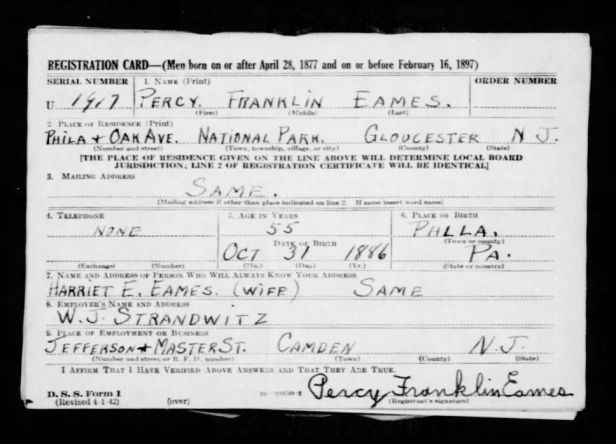 REGISTRATION CARD—(Men born on or after April 28, 1877 and on or before February 16, 1897)
SERIAL NUMBER 1. NAME (Print) ORDER NUMBER
U 1917 PERCY. FRANKLIN EAMES.
(First) (Middle) (Last)
2. PLACE OF RESIDENCE (Print)
PHILA + OAK AVE. NATIONAL PARK. GLOUCESTER N J.
(Number and street) (Town, township, village, or city) (County) (State)
[THE PLACE OF RESIDENCE GIVEN ON THE LINE ABOVE WILL DETERMINE LOCAL BOARD
JURISDICTION; LINE 2 OF REGISTRATION CERTIFICATE WILL BE IDENTICAL]
3. MAILING ADDRESS
SAME.
[Mailing address if other than place indicated on line 2. If same insert word same]
4. TELEPHONE 5. AGE IN YEARS 6. PLACE OF BIRTH
NONE 55 PHLLA,
DATE OF BIRTH (Town or county)
OCT 31 1886 PA.
(Exchange) (Number) (Mo.) (Day) (Yr.) (State or country)
7. NAME AND ADDRESS OF PERSON WHO WILL ALWAYS KNOW YOUR ADDRESS
HARRIET E. EAMES. (WIFE) SAME
8. EMPLOYER'S NAME AND ADDRESS
W. J. STRANDWITZ
9. PLACE OF EMPLOYMENT OR BUSINESS
JEFFERSON + MASTER ST. CAMDEN N. J.
(Number and street or R. F. D. number) (Town) (County) (State)
I AFFIRM THAT I HAVE VERIFIED ABOVE ANSWERS AND THAT THEY ARE TRUE.
Percy Franklin Eames
D. S. S. Form 1
(Revised 4-1-42) (over) (Registrant's signature)